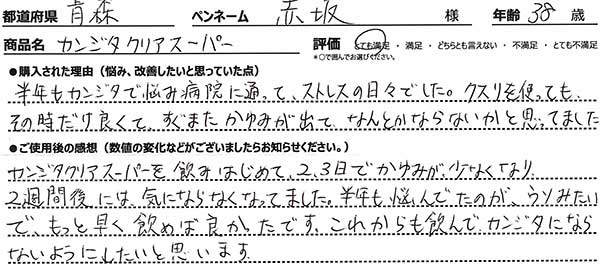 都道府県 青森 ペンネーム 赤坂 様 年齢 38 歳
商品名 カンジタクリアスーパー 評価 とても満足・満足・どちらとも言えない・不満足・とても不満足
*○で囲んでお選びください。
●購入された理由（悩み、改善したいと思っていた点）
半年もカンジタで悩み病院に通って、ストレスの日々でした。クスリを使っても、
その時だけ良くて、すぐまたかゆみが出て、なんとかならないかと思ってました
●ご使用後の感想（数値の変化などがございましたらお知らせください。）
カンジタクリアスーパーを飲みはじめて、2、3日でかゆみが少なくなり、
2週間後には、気にならなくなってました。半年も悩んでたのが、ウソみたい
で、もっと早く飲めば良かったです。これからも飲んでカンジタになら
ないようにしたいと思います。